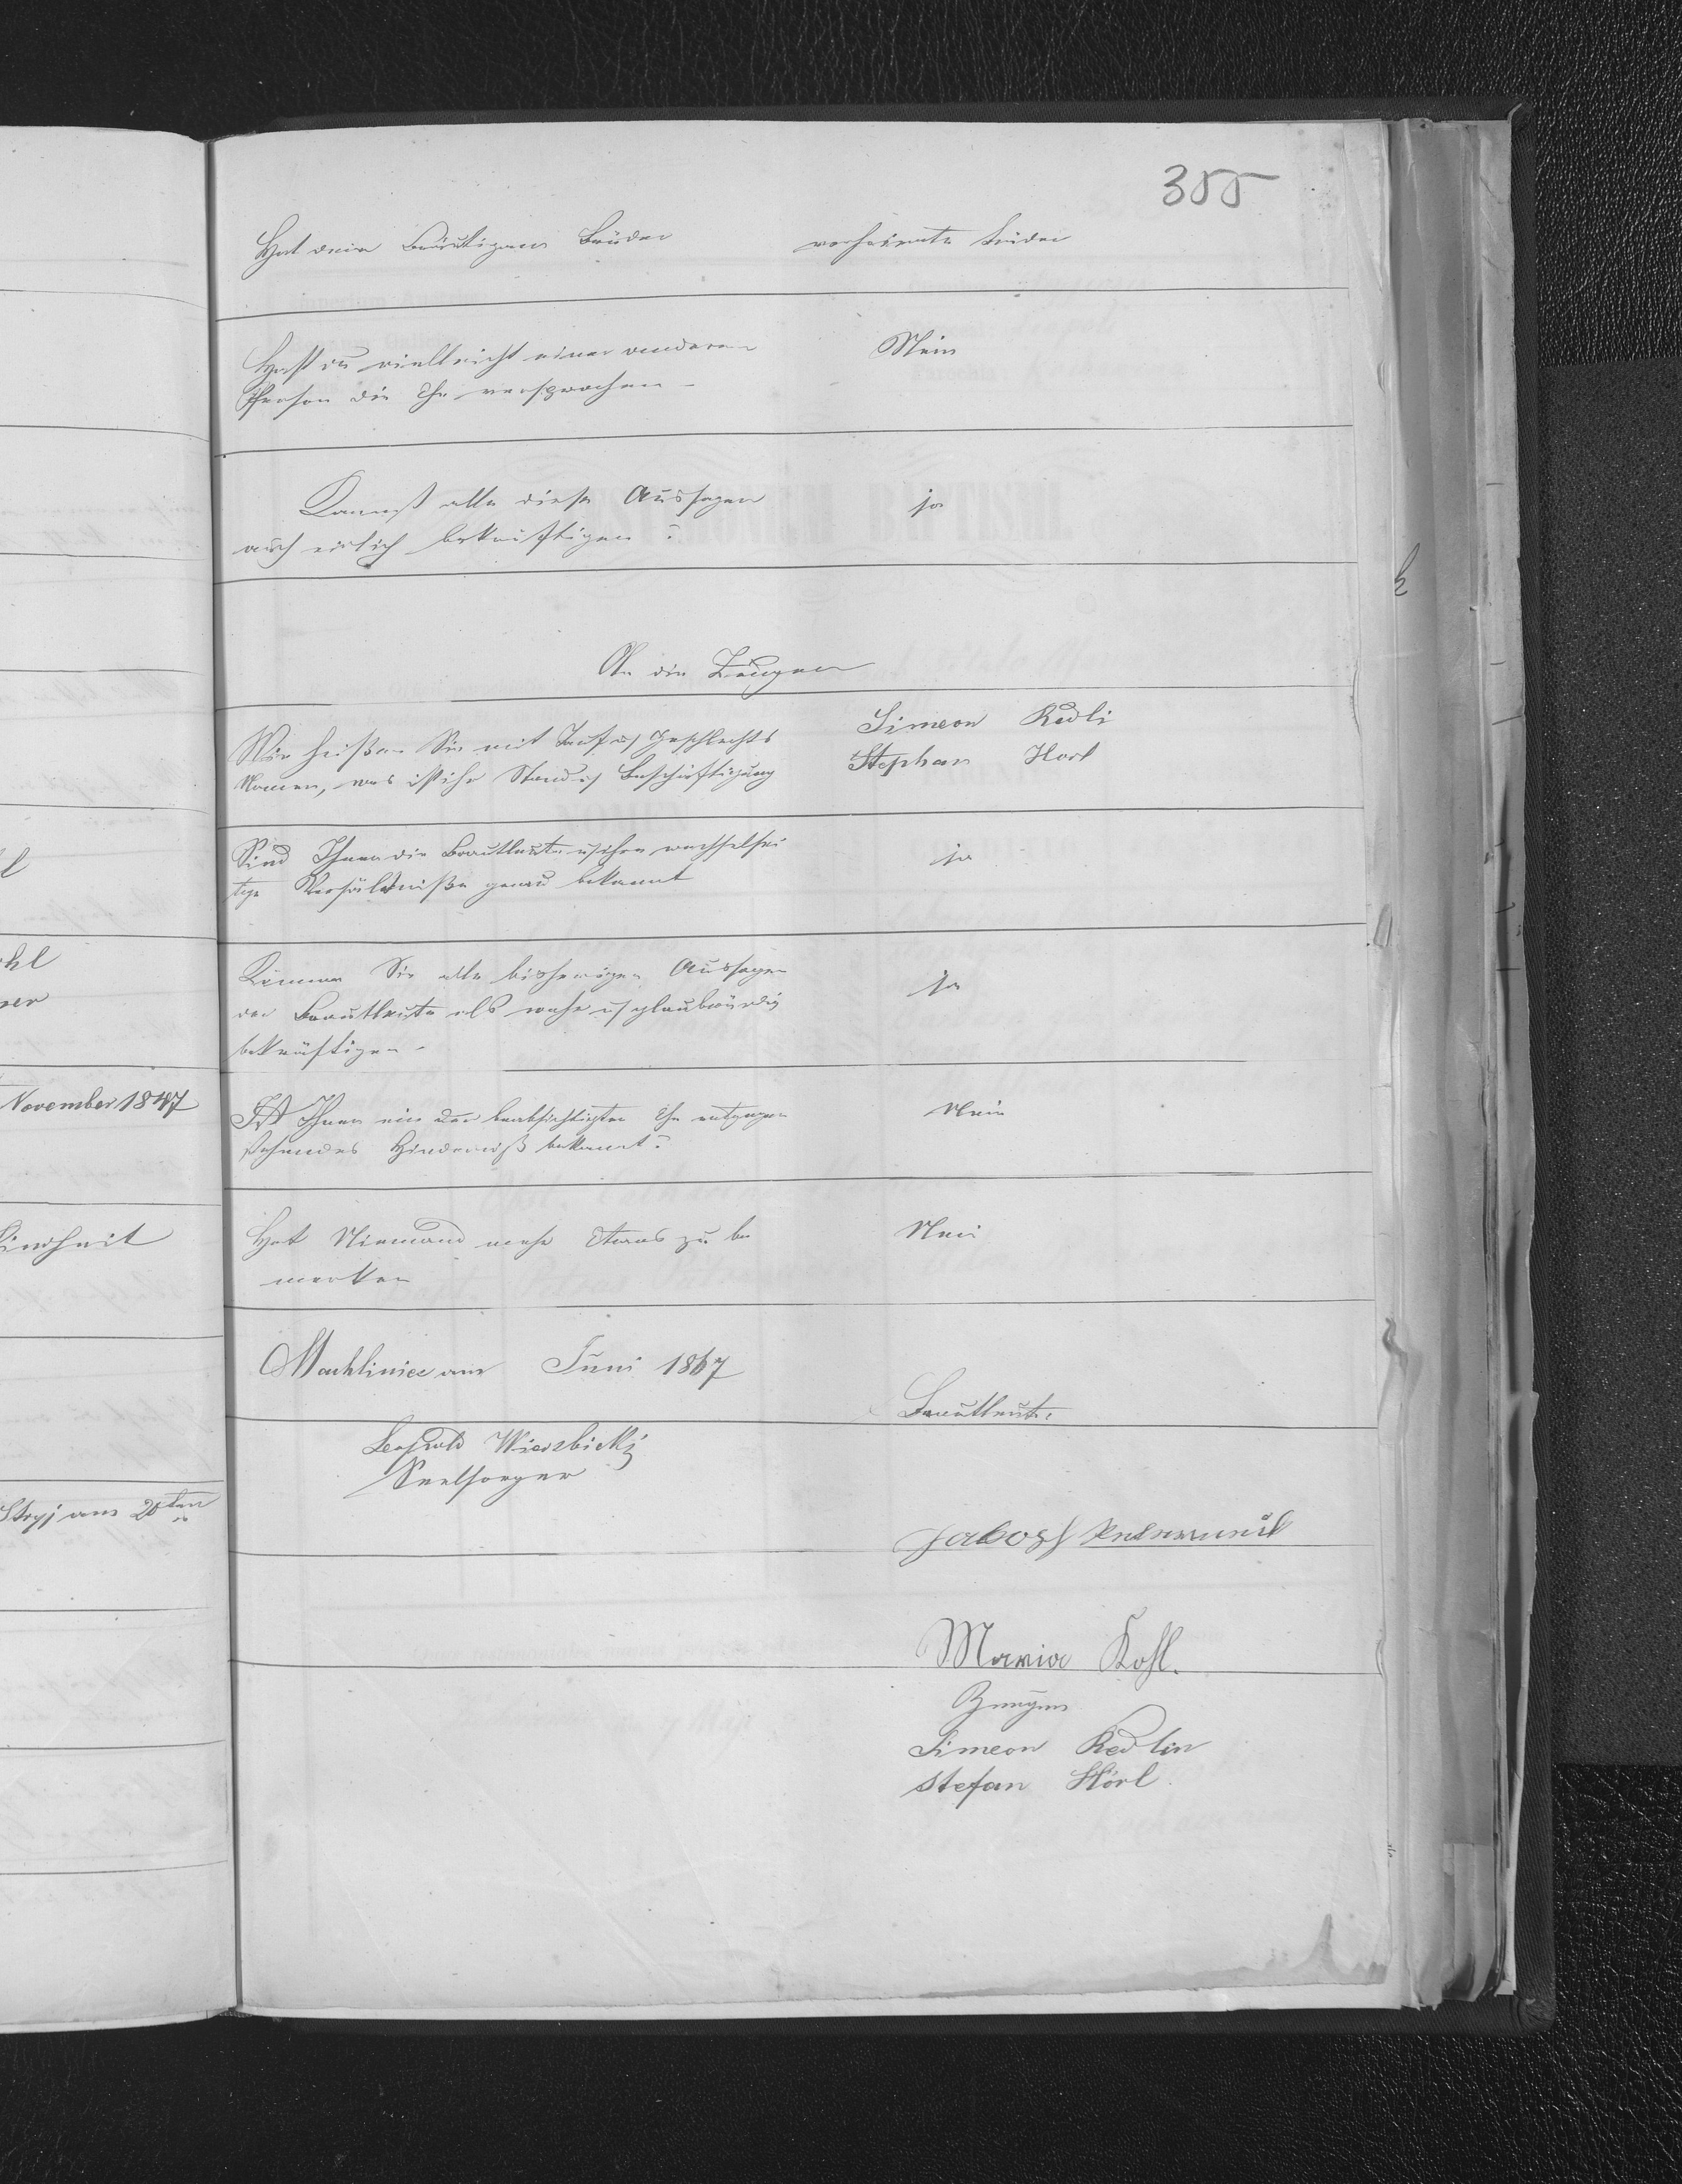 355
Hat dein Bräutigam Brüder
verheirate Brüder
Hast du vielleicht einer anderen
Person die Ehe versprochen -
Nein
Kannst alle diese Aussagen
auch eidlich bekräftigen?
ja
An die Zeugen
Wie heißen Sie mit Tauf u Geschlechts
Namen, was ist ihr Stand u Beschäftigung
Simeon Redli
Stephan Horl
Sind Ihnen die Brautleute u ihre wechselsei
tige Verhältniße genau bekannt
ja
Können Sie alle bisherigen Aussagen
der Brautleute als wahr u glaubwürdig
bekräftigen -
ja
Ist Ihnen ein der beabsichtigten Ehe entgegen
stehendes Hinderniß bekannt?
Nein
Hat Niemand mehr Etwas zu be
merken
Nein
Machliniec am Juni 1867
Brautleute
Leopold Wierzbicki
Seelsorger
Jakob
Maria Kohl.
Zeugen
Simeon Redlin
Stefan Hörl
November 1847
Kindheit
Stryj am 20ten